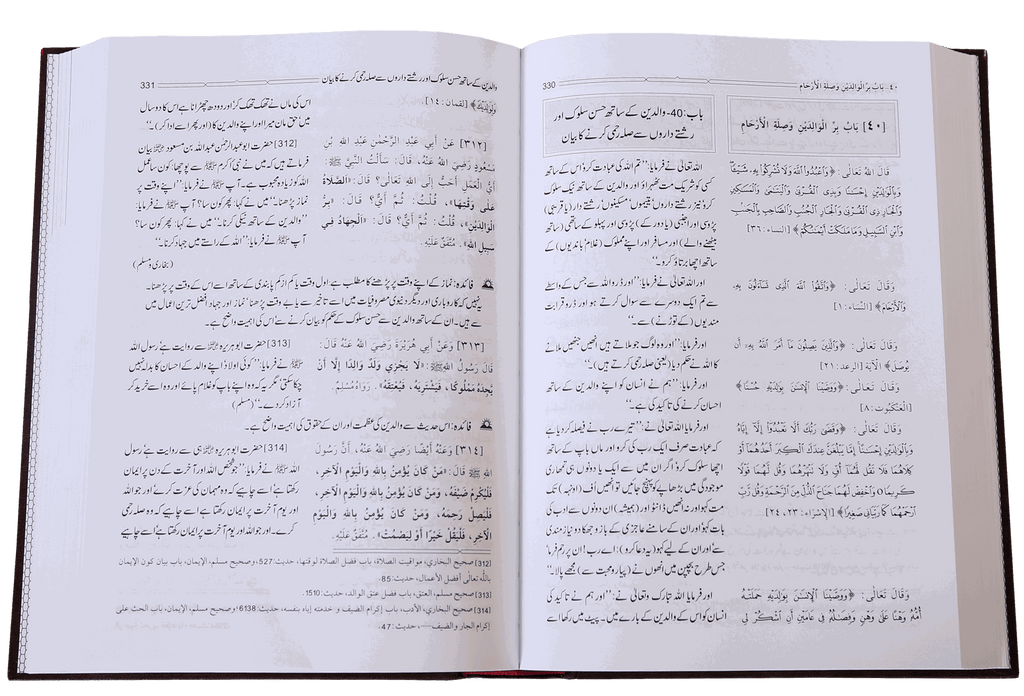 330
٤٠- بَابُ بِرِّ الْوَالِدَيْنِ وَصِلَةِ الْأَرْحَامِ
[٤٠] بَابُ بِرِّ الْوَالِدَيْنِ وَصِلَةِ الْأَرْحَامِ
قَالَ اللهُ تَعَالَى: ﴿وَاعْبُدُوا اللَّهَ وَلَا تُشْرِكُوا بِهِ شَيْئًا
وَبِالْوَالِدَيْنِ إِحْسَانًا وَبِذِي الْقُرْبَى وَالْيَتَامَى وَالْمَسَاكِينِ
وَالْجَارِ ذِي الْقُرْبَى وَالْجَارِ الْجُنُبِ وَالصَّاحِبِ بِالْجَنْبِ
وَابْنِ السَّبِيلِ وَمَا مَلَكَتْ أَيْمَانُكُمْ﴾ [النساء: ٣٦]
وَقَالَ تَعَالَى: ﴿وَاتَّقُوا اللَّهَ الَّذِي تَسَاءَلُونَ بِهِ
وَالْأَرْحَامَ﴾ [النِّسَاء: ١]
وَقَالَ تَعَالَى: ﴿وَالَّذِينَ يَصِلُونَ مَا أَمَرَ اللَّهُ بِهِ أَن
يُوصَلَ﴾ الْآيَةَ [الرعد: ٢١]
وَقَالَ تَعَالَى: ﴿وَوَصَّيْنَا الْإِنسَانَ بِوَالِدَيْهِ حُسْنًا﴾
[العنكبوت: ٨]
وَقَالَ تَعَالَى: ﴿وَقَضَى رَبُّكَ أَلَّا تَعْبُدُوا إِلَّا إِيَّاهُ
وَبِالْوَالِدَيْنِ إِحْسَانًا إِمَّا يَبْلُغَنَّ عِندَكَ الْكِبَرَ أَحَدُهُمَا أَوْ
كِلَاهُمَا فَلَا تَقُل لَّهُمَا أُفٍّ وَلَا تَنْهَرْهُمَا وَقُل لَّهُمَا قَوْلًا
كَرِيمًا ٥ وَاخْفِضْ لَهُمَا جَنَاحَ الذُّلِّ مِنَ الرَّحْمَةِ وَقُل رَّبِّ
ارْحَمْهُمَا كَمَا رَبَّيَانِي صَغِيرًا﴾ [الإسراء: ٢٣، ٢٤]
وَقَالَ تَعَالَى: ﴿وَوَصَّيْنَا الْإِنسَانَ بِوَالِدَيْهِ حَمَلَتْهُ
أُمُّهُ وَهْنًا عَلَى وَهْنٍ وَفِصَالُهُ فِي عَامَيْنِ أَنِ اشْكُرْ لِي
باب:40- والدین کے ساتھ حسن سلوک اور
رشتے داروں سے صلہ رحمی کرنے کا بیان
اللہ تعالیٰ نے فرمایا: ''تم اللہ کی عبادت کرو' اس کے ساتھ
کسی کو شریک مت ٹھہراؤ اور والدین کے ساتھ نیک سلوک
کرو' نیز رشتے داروں' یتیموں' مسکینوں' رشتے دار (یا قریبی)
پڑوسی اور اجنبی (یا دور کے) پڑوسی اور پہلو کے ساتھی (ساتھ
بیٹھنے والے) اور مسافر اور اپنے مملوک (غلام' باندیوں) کے
ساتھ اچھا برتاؤ کرو۔''
اور اللہ تعالیٰ نے فرمایا: ''اور ڈرو اللہ سے جس کے واسطے
سے تم ایک دوسرے سے سوال کرتے ہو اور ڈرو قرابت
مندیوں (کے توڑنے) سے۔''
اور فرمایا: ''اور وہ لوگ جو ملاتے ہیں انھیں جنھیں ملانے
کا اللہ نے حکم دیا (یعنی صلہ رحمی کرتے ہیں)۔''
اور فرمایا: ''ہم نے انسان کو اپنے والدین کے ساتھ
احسان کرنے کی تاکید کی ہے۔''
اور فرمایا اللہ تعالیٰ نے: ''تیرے رب نے فیصلہ کر دیا ہے
کہ عبادت صرف ایک رب کی کرو اور ماں باپ کے ساتھ
اچھا سلوک کرو' اگر ان میں سے ایک یا دونوں ہی تمھاری
موجودگی میں بڑھاپے کو پہنچ جائیں تو انھیں اُف (اونہہ) تک
مت کہو اور نہ انھیں ڈانٹو اور (ہمیشہ) ان دونوں سے ادب کی
بات کہو' اور ان کے سامنے عاجزی کے بازو جھکا دو' نیازمندی
سے' اور ان کے لیے کہو (یہ دعا کرو): اے رب! ان پر رحم فرما
جس طرح بچپن میں انھوں نے (پیار و محبت سے) مجھے پالا۔''
اور فرمایا اللہ تبارک وتعالیٰ نے: ''اور ہم نے تاکید کی
انسان کو اس کے والدین کے بارے میں۔ پیٹ میں رکھا اسے
والدین کے ساتھ حسن سلوک اور رشتے داروں سے صلہ رحمی کرنے کا بیان
331
وَلِوَالِدَيْكَ﴾ [لقمان: ١٤]
اس کی ماں نے تھک تھک کر' اور دودھ چھڑانا ہے اس کا دو سال
میں' حق مان میرا اور اپنے والدین کا (اور پھر اسے ادا کر)۔''
[٣١٢] عَنْ أَبِي عَبْدِ الرَّحْمٰنِ عَبْدِ اللهِ بْنِ
مَسْعُودٍ رَضِيَ اللهُ عَنْهُ، قَالَ: سَأَلْتُ النَّبِيَّ ﷺ:
أَيُّ الْعَمَلِ أَحَبُّ إِلَى اللهِ تَعَالَى؟ قَالَ: «الصَّلَاةُ
عَلَى وَقْتِهَا»، قُلْتُ: ثُمَّ أَيٌّ؟ قَالَ: «بِرُّ
الْوَالِدَيْنِ»، قُلْتُ: ثُمَّ أَيٌّ؟ قَالَ: «الْجِهَادُ فِي
سَبِيلِ اللهِ». مُتَّفَقٌ عَلَيْهِ.
[312] حضرت ابوعبدالرحمٰن عبداللہ بن مسعود ؓ بیان
فرماتے ہیں کہ میں نے نبی اکرم ﷺ سے پوچھا: کون سا عمل
اللہ کو زیادہ محبوب ہے۔ آپ ﷺ نے فرمایا: ''اپنے وقت پر
نماز پڑھنا۔'' میں نے کہا: پھر کون سا؟ آپ ﷺ نے فرمایا:
''والدین کے ساتھ نیکی کرنا۔'' میں نے کہا: پھر کون سا؟
آپ ﷺ نے فرمایا: ''اللہ کے راستے میں جہاد کرنا۔''
(بخاری و مسلم)
فائدہ: نماز کے اپنے وقت پر پڑھنے کا مطلب ہے اول وقت یا کم از کم پابندی کے ساتھ اسے اس کے وقت پر پڑھنا۔
یہ نہیں کہ کاروباری اور دیگر دنیوی مصروفیات میں اسے تاخیر سے یا بے وقت پڑھنا' نماز اور جہاد افضل ترین اعمال میں
سے ہیں۔ ان کے ساتھ والدین سے حسن سلوک کے حکم کو بیان کرنے سے اس کی اہمیت واضح ہے۔
[٣١٣] وَعَنْ أَبِي هُرَيْرَةَ رَضِيَ اللهُ عَنْهُ قَالَ:
قَالَ رَسُولُ اللهِ ﷺ: «لَا يَجْزِي وَلَدٌ وَالِدًا إِلَّا أَنْ
يَجِدَهُ مَمْلُوكًا، فَيَشْتَرِيَهُ، فَيُعْتِقَهُ». رَوَاهُ مُسْلِمٌ.
[313] حضرت ابوہریرہ ؓ سے روایت ہے' رسول اللہ
ﷺ نے فرمایا: ''کوئی اولاد' اپنے والد کے احسان کا بدلہ نہیں
چکا سکتی' مگر یہ کہ وہ اپنے باپ کو غلام پائے اور وہ اسے خرید کر
آزاد کر دے۔'' (مسلم)
فائدہ: اس حدیث سے والدین کی عظمت اور ان کے حقوق کی اہمیت واضح ہے۔
[٣١٤] وَعَنْهُ أَيْضًا رَضِيَ اللهُ عَنْهُ، أَنَّ رَسُولَ
اللهِ ﷺ قَالَ: «مَنْ كَانَ يُؤْمِنُ بِاللهِ وَالْيَوْمِ الْآخِرِ،
فَلْيُكْرِمْ ضَيْفَهُ، وَمَنْ كَانَ يُؤْمِنُ بِاللهِ وَالْيَوْمِ الْآخِرِ،
فَلْيَصِلْ رَحِمَهُ، وَمَنْ كَانَ يُؤْمِنُ بِاللهِ وَالْيَوْمِ
الْآخِرِ، فَلْيَقُلْ خَيْرًا أَوْ لِيَصْمُتْ». مُتَّفَقٌ عَلَيْهِ.
[314] حضرت ابوہریرہ ؓ ہی سے روایت ہے' رسول
اللہ ﷺ نے فرمایا: ''جو شخص اللہ اور آخرت کے دن پر ایمان
رکھتا ہے' اسے چاہیے کہ وہ مہمان کی عزت کرے' اور جو اللہ
اور یوم آخرت پر ایمان رکھتا ہے اسے چاہیے کہ وہ صلہ رحمی
کرے۔ اور جو اللہ اور یوم آخرت پر ایمان رکھتا ہے' اسے چاہیے
[312] صحيح البخاري، مواقيت الصلاة، باب فضل الصلاة لوقتها، حديث: 527، وصحيح مسلم، الإيمان، باب بيان كون الإيمان
بالله تعالى أفضل الأعمال، حديث: 85.
[313] صحيح مسلم، العتق، باب فضل عتق الوالد، حديث: 1510.
[314] صحيح البخاري، الأدب، باب إكرام الضيف و خدمته إياه بنفسه، حديث: 6138، وصحيح مسلم، الإيمان، باب الحث على
إكرام الجار والضيف......، حديث: 47.